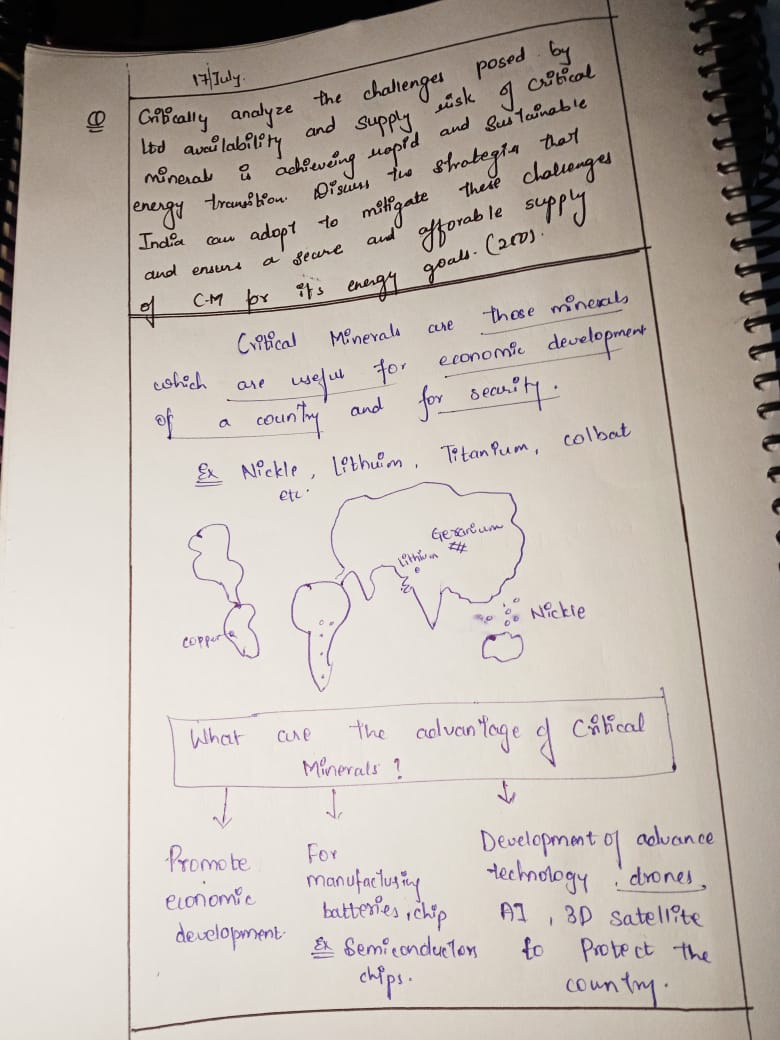 17/July.
Q Critically analyze the challenges posed by
ltd availability and supply risk of critical
minerals is achieveing rapid and sustainable
energy transition. Disuss the strategies that
India can adopt to mitigate these challenges
and ensure a secure and afforable supply
of C-M for its energy goals. (200).
Critical Minerals are those minerals
which are useful for economic development
of a country and for security.
Ex Nickle, Lithuim, Titanium, colbat
etc.
Geranium
Lithium
Copper
Nickle
What are the advantage of Critical
Minerals?
Promote
economic
development.
For
manufacturing
batteries, chip
Ex Semiconductors
chips.
Development of advance
technology, drones,
AI, 3D satellite
to Protect the
country.